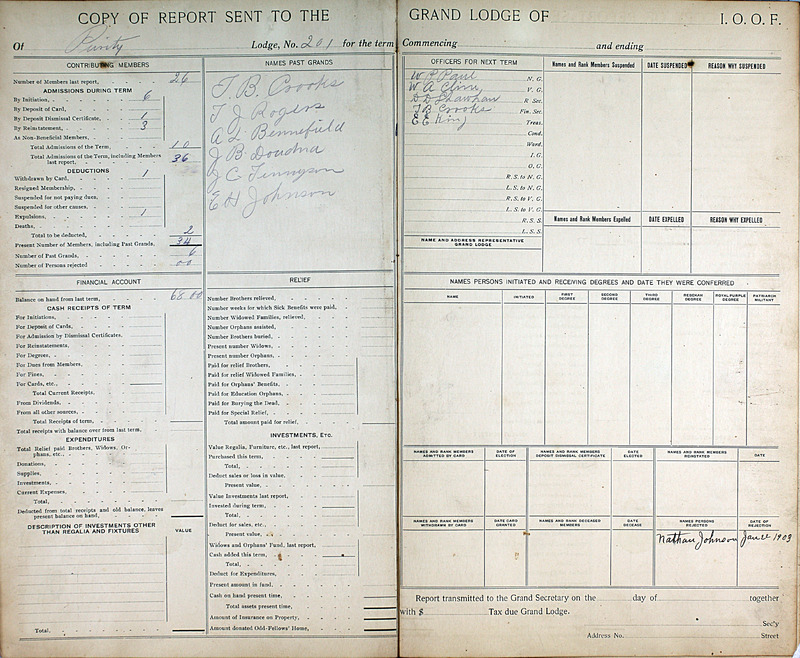 COPY OF REPORT SENT TO THE GRAND LODGE OF I. O. O. F.
Of Purity Lodge, No. 201 for the term Commencing and ending
CONTRIBUTING MEMBERS
Number of Members last report, 26
ADMISSIONS DURING TERM
By Initiation, 6
By Deposit of Card,
By Deposit Dismissal Certificate, 1
By Reinstatement, 3
As Non-Beneficial Members,
Total Admissions of the Term, 10
Total Admissions of the Term, including Members
last report, 36
DEDUCTIONS
Withdrawn by Card, 1
Resigned Membership,
Suspended for not paying dues,
Suspended for other causes,
Expulsions, 1
Deaths,
Total to be deducted, 2
Present Number of Members, including Past Grands, 34
Number of Past Grands, 6
Number of Persons rejected 00
NAMES PAST GRANDS
T. B. Crooks
T J Rogers
A L Bennefield
J B Doudna
J C Tennyson
E H Johnson
FINANCIAL ACCOUNT
Balance on hand from last term, 68.00
CASH RECEIPTS OF TERM
For Initiations,
For Deposit of Cards,
For Admission by Dismissal Certificates,
For Reinstatements,
For Degrees,
For Dues from Members,
For Fines,
For Cards, etc.,
Total Current Receipts.
From Dividends,
From all other sources,
Total Receipts of term,
Total receipts with balance over from last term.
EXPENDITURES
Total Relief paid Brothers, Widows, Or-
phans, etc.,
Donations,
Supplies,
Investments,
Current Expenses,
Total,
Deducted from total receipts and old balance, leaves
present balance on hand,
DESCRIPTION OF INVESTMENTS OTHER
THAN REGALIA AND FIXTURES
VALUE
Total.
RELIEF
Number Brothers relieved,
Number weeks for which Sick Benefits were paid,
Number Widowed Families, relieved,
Number Orphans assisted,
Number Brothers buried,
Present number Widows,
Present number Orphans,
Paid for relief Brothers,
Paid for relief Widowed Families,
Paid for Orphans' Benefits,
Paid for Education Orphans,
Paid for Burying the Dead,
Paid for Special Relief,
Total amount paid for relief,
INVESTMENTS, Etc.
Value Regalia, Furniture, etc., last report,
Purchased this term,
Total,
Deduct sales or loss in value,
Present value,
Value Investments last report,
Invested during term,
Total,
Deduct for sales, etc.,
Present value,
Widows and Orphans' Fund, last report,
Cash added this term,
Total,
Deduct for Expenditures,
Present amount in fund,
Cash on hand present time,
Total assets present time,
Amount of Insurance on Property,
Amount donated Odd-Fellows' Home,
OFFICERS FOR NEXT TERM
W P Paul N. G.
W A V. G.
D D R Sec.
T B Crooks Fin. Sec.
E E King Treas.
Cond.
Ward.
I. G.
O. G.
R. S. to N. G.
L. S. to N. G.
R. S. to V. G.
L. S. to V. G.
R. S. S.
L. S. S.
NAME AND ADDRESS REPRESENTATIVE
GRAND LODGE
Names and Rank Members Suspended
DATE SUSPENDED
REASON WHY SUSPENDED
Names and Rank Members Expelled
DATE EXPELLED
REASON WHY EXPELLED
NAMES PERSONS INITIATED AND RECEIVING DEGREES AND DATE THEY WERE CONFERRED
NAME
INITIATED
FIRST DEGREE
SECOND DEGREE
THIRD DEGREE
REBEKAH DEGREE
ROYAL PURPLE DEGREE
PATRIARCH MILITANT
NAMES AND RANK MEMBERS ADMITTED BY CARD
DATE OF ELECTION
NAMES AND RANK MEMBERS DEPOSIT DISMISSAL CERTIFICATE
DATE ELECTED
NAMES AND RANK MEMBERS REINSTATED
DATE
NAMES AND RANK MEMBERS WITHDRAWN BY CARD
DATE CARD GRANTED
NAMES AND RANK DECEASED MEMBERS
DATE DECEASE
NAMES PERSONS REJECTED
DATE OF REJECTION
Nathan Johnson Jan 22 1903
Report transmitted to the Grand Secretary on the day of together
with $ Tax due Grand Lodge.
Sec'y
Address No. Street